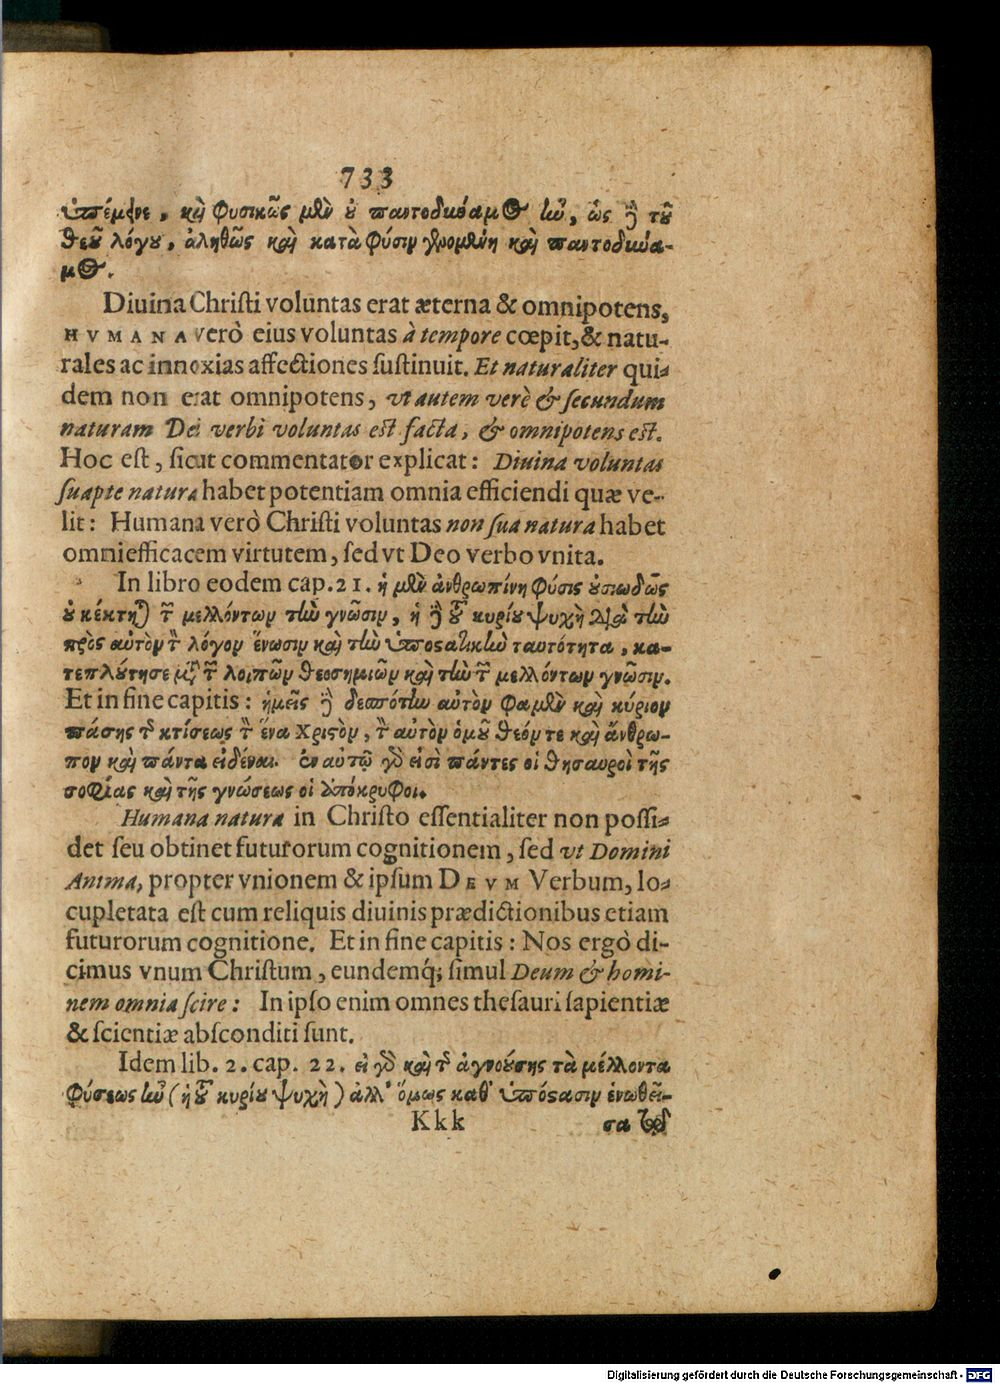 733
ὑπέμεινε, καὶ φυσικῶς μὲν οὐ παντοδύναμος ἦν, ὡς δὲ τοῦ
θεοῦ λόγου, ἀληθῶς καὶ κατὰ φύσιν γενομένη καὶ παντοδύνα-
μος.
Diuina Chriſti voluntas erat æterna & omnipotens,
HVMANA verò eius voluntas à tempore cœpit, & natu-
rales ac innoxias affectiones ſuſtinuit. Et naturaliter qui-
dem non erat omnipotens, vt autem verè & ſecundum
naturam Dei verbi voluntas eſt facta, & omnipotens eſt.
Hoc eſt, ſicut commentator explicat: Diuina voluntas
ſuapte natura habet potentiam omnia efficiendi quæ ve-
lit: Humana verò Chriſti voluntas non ſua natura habet
omniefficacem virtutem, ſed vt Deo verbo vnita.
In libro eodem cap. 21. ἡ μὲν ἀνθρωπίνη φύσις οὐσιωδῶς
οὐ κέκτηται τῶν μελλόντων τὴν γνῶσιν, ἡ δὲ τοῦ κυρίου ψυχὴ διὰ τὴν
πρὸς αὐτὸν τὸν λόγον ἕνωσιν καὶ τὴν ὑποστατικὴν ταυτότητα, κα-
τεπλούτησε μετὰ τῶν λοιπῶν θεοσημιῶν καὶ τὴν τῶν μελλόντων γνῶσιν.
Et in fine capitis: ἡμεῖς δὲ δεσπότην αὐτὸν φαμὲν καὶ κύριον
πάσης τῆς κτίσεως τὸν ἕνα Χριστὸν, τὸν αὐτὸν ὁμοῦ θεόν τε καὶ ἄνθρω-
πον καὶ πάντα εἰδέναι. ἐν αὐτῷ γὰρ εἰσὶ πάντες οἱ θησαυροὶ τῆς
σοφίας καὶ τῆς γνώσεως οἱ ἀπόκρυφοι.
Humana natura in Chriſto eſſentialiter non poſſi-
det ſeu obtinet futurorum cognitionem, ſed vt Domini
Anima, propter vnionem & ipſum DEVM Verbum, lo-
cupletata eſt cum reliquis diuinis prædictionibus etiam
futurorum cognitione. Et in fine capitis: Nos ergò di-
cimus vnum Chriſtum, eundemq́; ſimul Deum & homi-
nem omnia ſcire: In ipſo enim omnes theſauri ſapientiæ
& ſcientiæ abſconditi ſunt.
Idem lib. 2. cap. 22. εἰ γὰρ καὶ τῆς ἀγνοούσης τὰ μέλλοντα
φύσεως ἦν (ἡ τοῦ κυρίου ψυχὴ) ἀλλ' ὅμως καθ' ὑπόστασιν ἑνωθεῖ-
Kkk σα τῷ
Digitalisierung gefördert durch die Deutsche Forschungsgemeinschaft - DFG